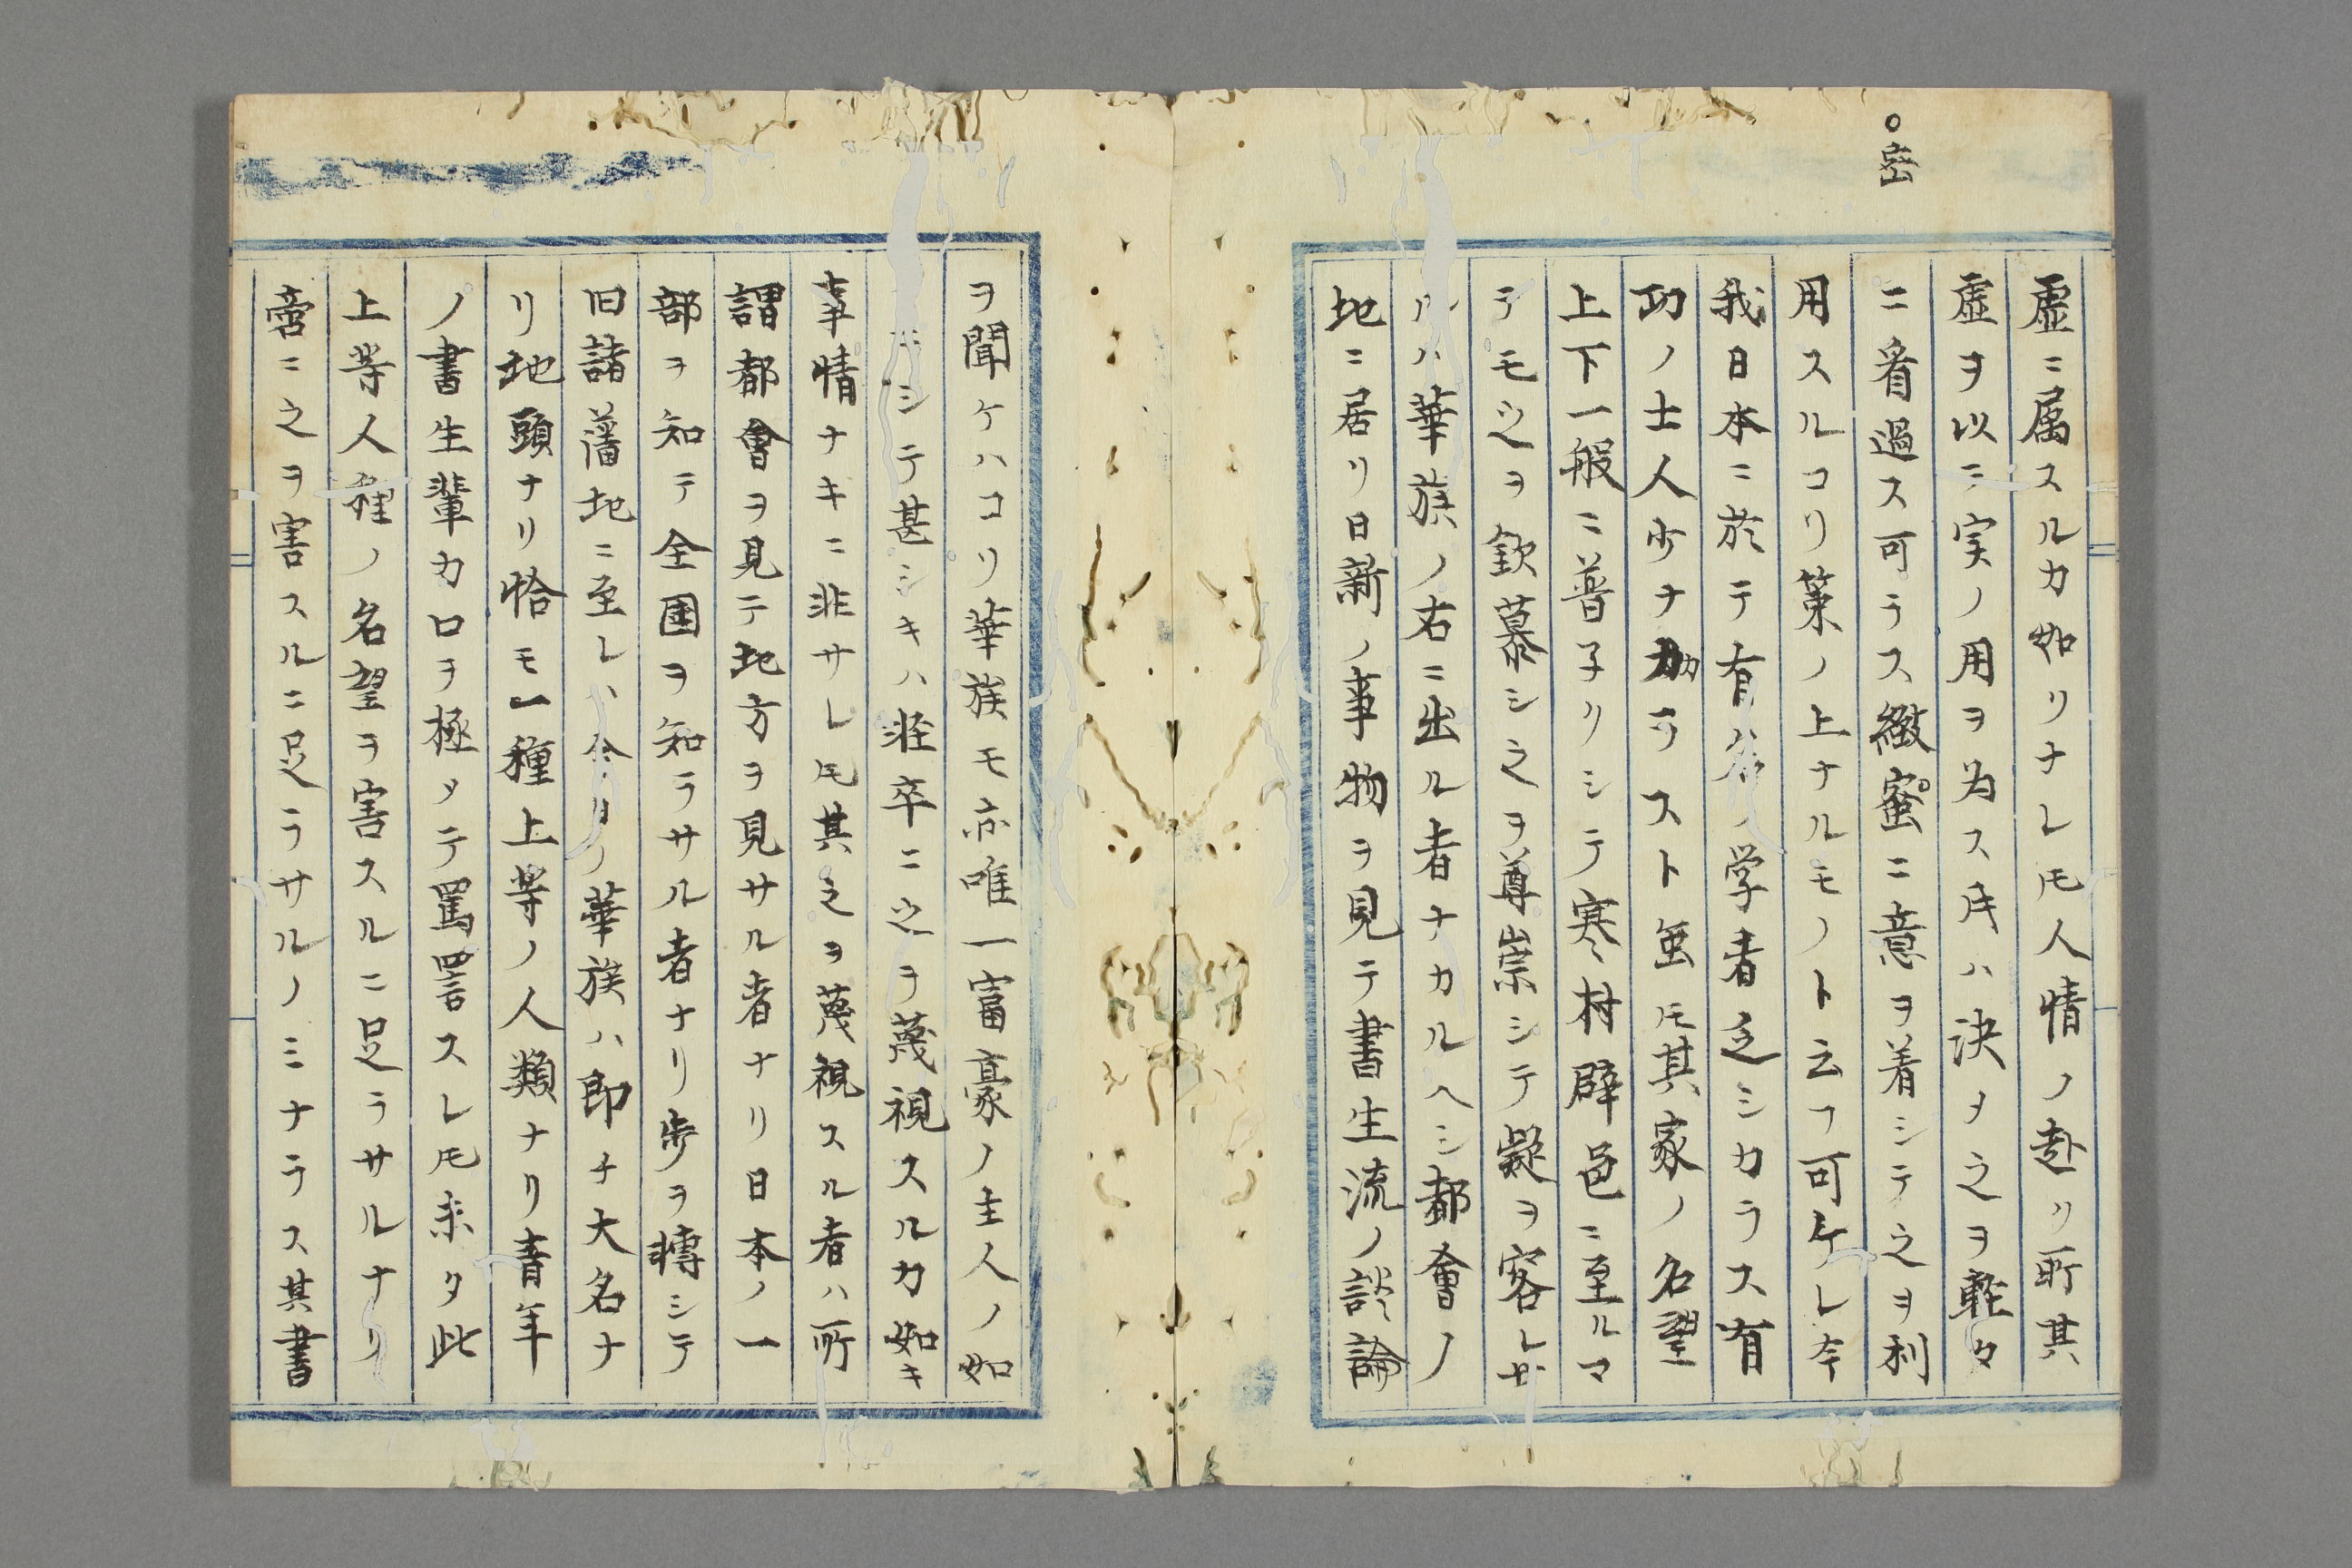 ○密
虚ニ属スルカ如リナレ𪜈人情ノ赴リ所其
虚ヲ以ニ実ノ用ヲ為ス片ハ決ノ之ヲ軽タ
ニ看過ス可ラス緻蜜ニ意ヲ着シテ之ヲ利
用スルコリ策ノ上ナルモノト云フ可ケレ今
我日本ニ於テ有名ノ学者乏シカラス有
功ノ士人少ナカラスト虽𪜈其家ノ名望
上下一般ニ普子リシテ寒村辟邑ニ至ルマ
テモ之ヲ欽慕シ之ヲ尊崇シテ疑ヲ容レサ
ルハ華族ノ右ニ出ル者ナカルヘシ都會ノ
地ニ居リ日新ノ事物ヲ見テ書生流ノ談論
ヲ聞ケハコリ華族モ亦唯一富豪ノ主人ノ如
シテ甚シキハ粧卒ニ之ヲ蔑視スルカ如キ
事情ナキニ非サレ𪜈其之ヲ蔑視スル者ハ所
謂都會ヲ見テ地方ヲ見サル者ナリ日本ノ一
部ヲ知テ全国ヲ知ラサル者ナリ歩ヲ轉シテ
旧諸藩地ニ至レハ今日ノ華族ハ即チ大名ナ
リ地頭ナリ恰モ一種上等ノ人類ナリ青年
ノ書生輩カ口ヲ極メテ罵詈スレ𪜈未タ此
上等人種ノ名望ヲ害スルニ足ラサルナリ
啻ニ之ヲ害スルニ足ラサルノミナラス其書